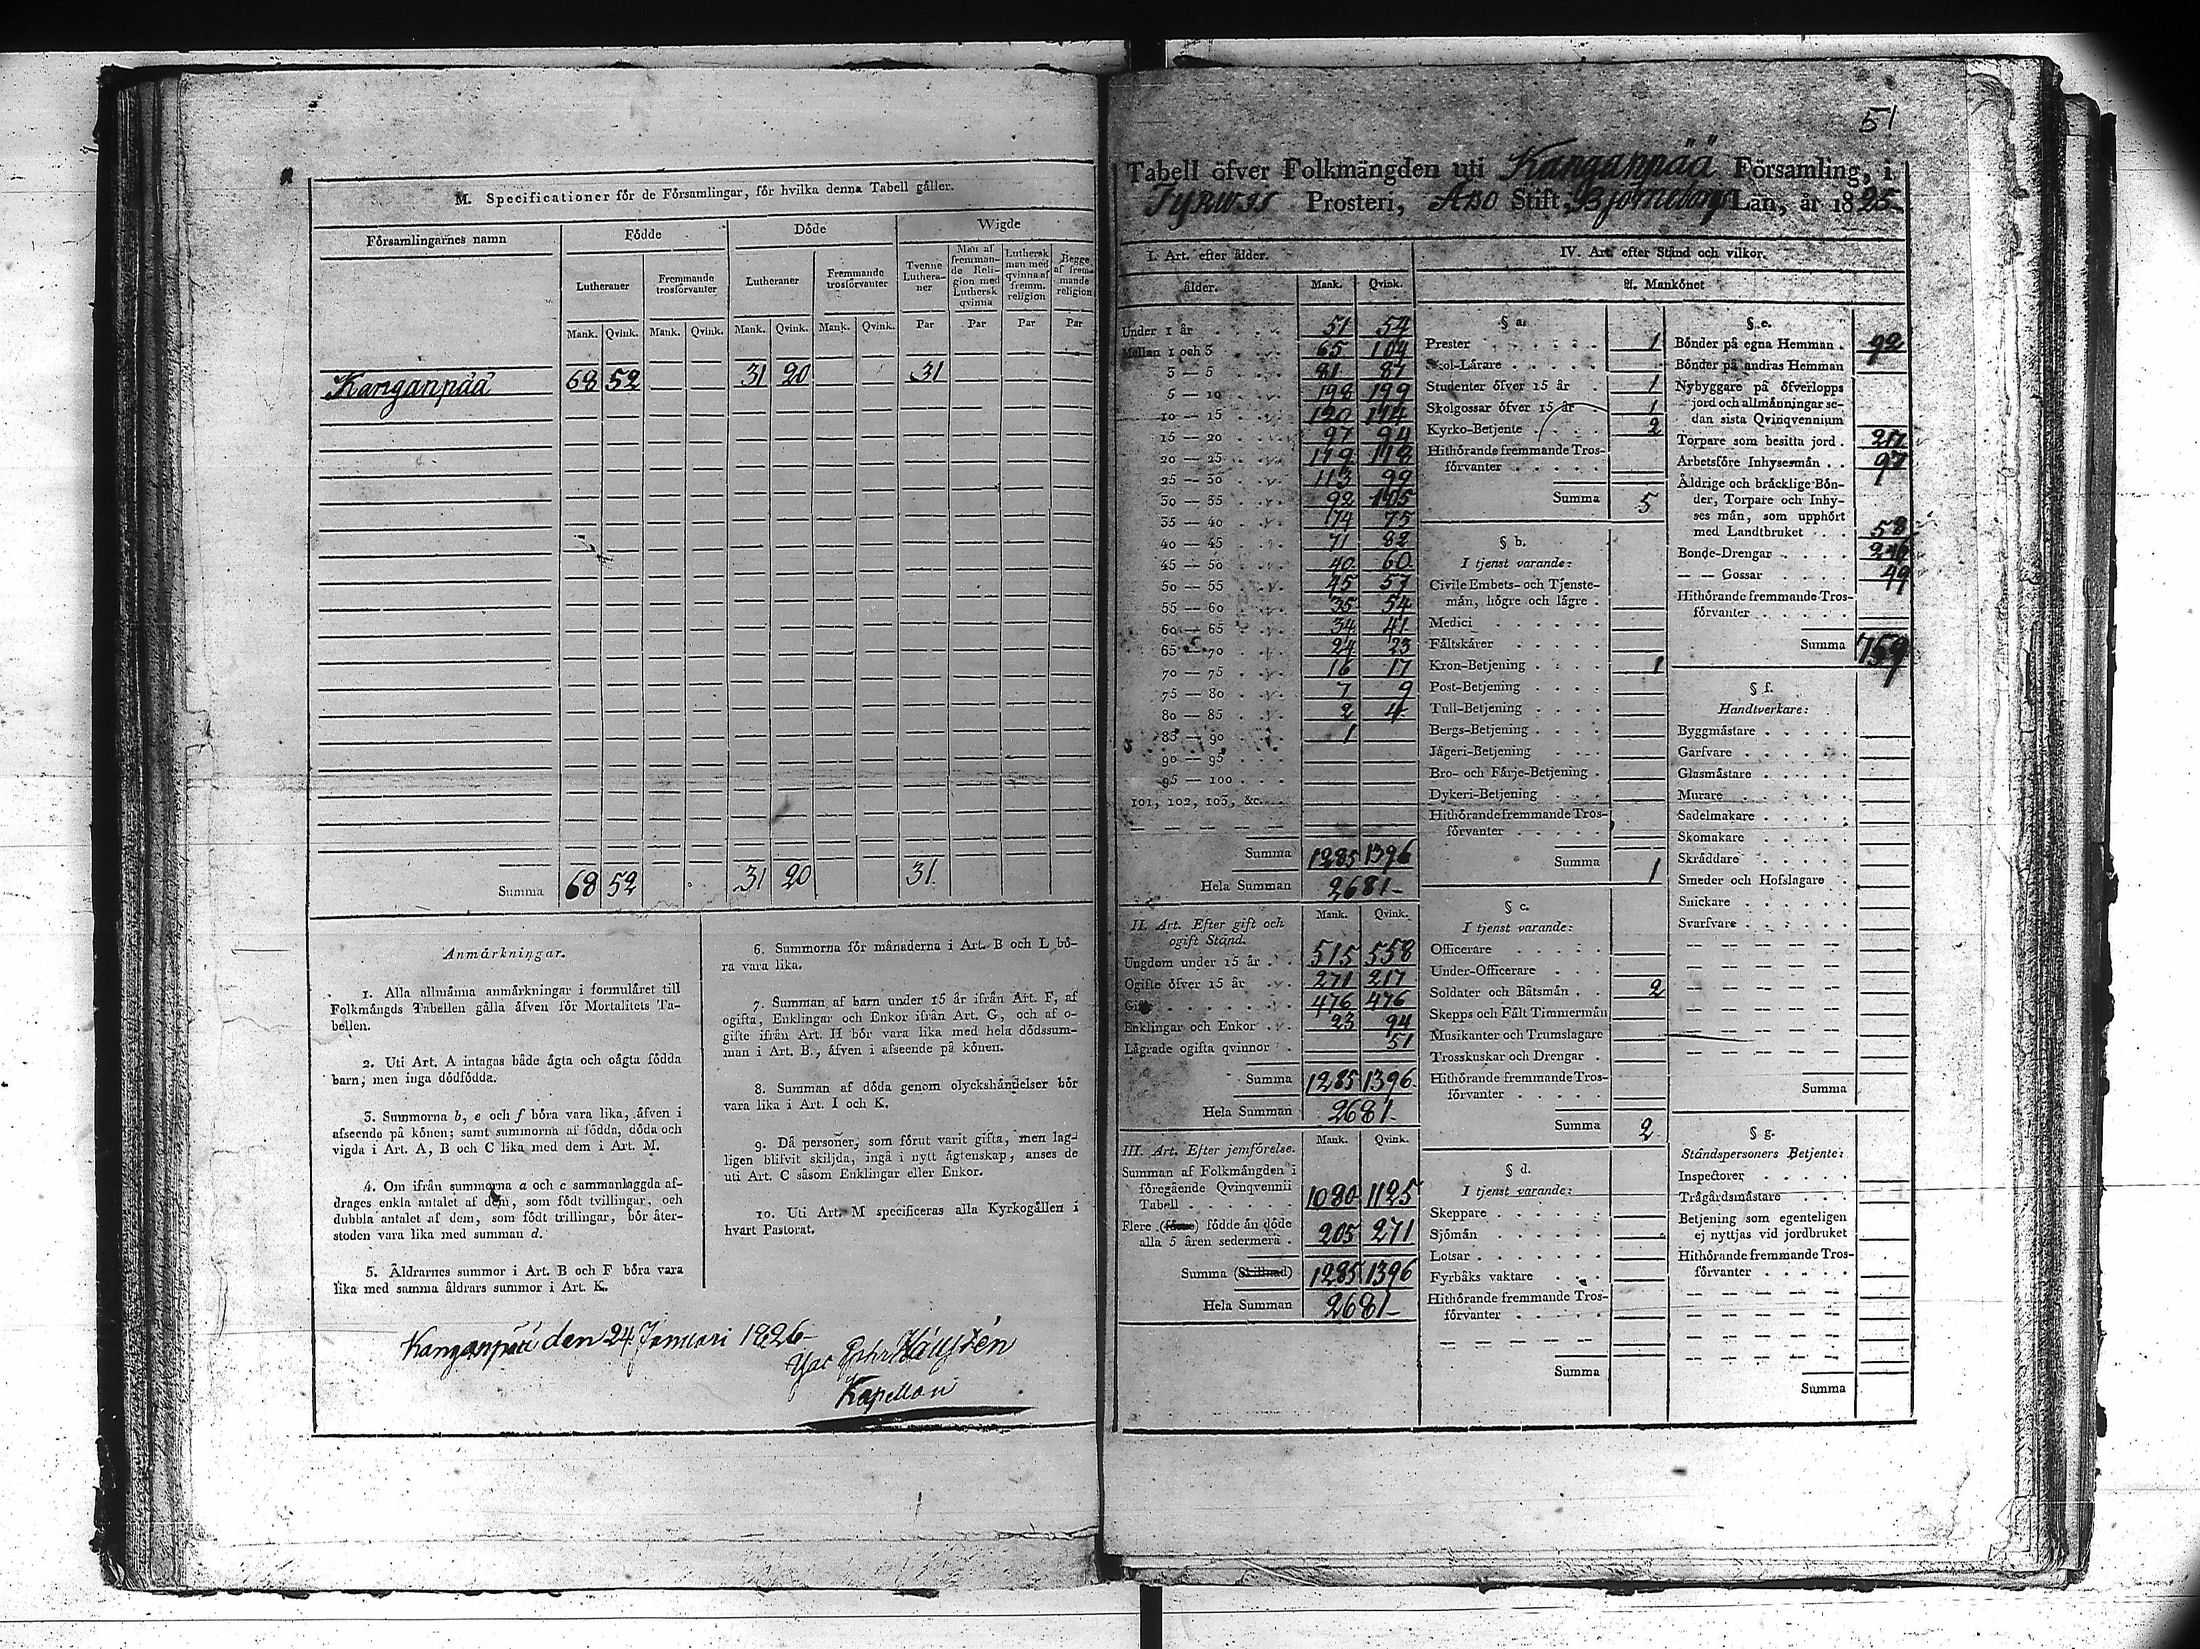 M. Specificationer för de Församlingar, för hvilka denna Tabell gåller.
Församlingarnes namn
Födde
Döde
Wigde
Lutheraner
Fremmande trosförvanter
Lutheraner
Fremmande trosförvanter
Tvenne Lutheraner
Man af fremmande Religion med Luthersk qvinna
Luthersk man med qvinna af fremm. religion
Begge af fremmande religion
Mank. Qvink. Mank. Qvink. Mank. Qvink. Mank. Qvink. Par Par Par Par
Kanganpää 68 52 31 20 31
Summa 68 52 31 20 31
Anmärkningar.
1. Alla allmänna anmärkningar i formuläret till
Folkmängds Tabellen gälla äfven för Mortalitets Ta-
bellen.
2. Uti Art. A intagas både ägta och oägta födda
barn, men inga dödfödda.
3. Summorna b, e och f böra vara lika, äfven i
afseende på könen; samt summorna af födda, döda och
vigda i Art. A, B och C lika med dem i Art. M.
4. Om ifrån summorna a och c sammanlaggda af-
drages enkla antalet af dem, som födt tvillingar, och
dubbla antalet af dem, som födt trillingar, bör åter-
stoden vara lika med summan d.
5. Åldrarnes summor i Art. B och F böra vara
lika med samma åldrars summor i Art. K.
6. Summorna för månaderna i Art. B och L bö-
ra vara lika.
7. Summan af barn under 15 år ifrån Art. F, af
ogifta, Enklingar och Enkor ifrån Art. G, och af o-
gifte ifrån Art. H bör vara lika med hela dödssum-
man i Art. B., äfven i afseende på könen.
8. Summan af döda genom olyckshändelser bör
vara lika i Art. I och K.
9. Då personer, som förut varit gifta, men lag-
ligen blifvit skiljda, ingå i nytt ägtenskap, anses de
uti Art. C såsom Enklingar eller Enkor.
10. Uti Art. M specificeras alla Kyrkogällen i
hvart Pastorat.
Kanganpää den 24 Januari 1826
Kapellan
51
Tabell öfver Folkmängden uti Kanganpää Församling, i
Tyrwis Prosteri, Åbo Stift, Björneborgs Län, år 1825
I. Art. efter ålder.
ålder. Mank. Qvink.
Under 1 år 51 54
Mellan 1 och 3 65 104
3 — 5 81 87
5 — 10 198 199
10 — 15 120 114
15 — 20 97 94
20 — 25 119 118
25 — 30 113 99
30 — 35 92 105
35 — 40 74 75
40 — 45 71 82
45 — 50 40 60
50 — 55 45 57
55 — 60 35 54
60 — 65 34 41
65 — 70 24 23
70 — 75 16 17
75 — 80 7 9
80 — 85 2 4
85 — 90 1
90 — 95
95 — 100
101, 102, 103, &c.
Summa 1285 1396
Hela Summan 2681
II. Art. Efter gift och
ogift Stånd. Mank. Qvink.
Ungdom under 15 år 515 558
Ogifte öfver 15 år 271 217
Gifte 476 476
Enklingar och Enkor 23 94
Lägrade ogifta qvinnor 51
Summa 1285 1396
Hela Summan 2681
III. Art. Efter jemförelse. Mank. Qvink.
Summan af Folkmängden i
föregående Qvinqvennii
Tabell 1080 1125
Flere (färre) födde än döde
alla 5 åren sedermera 205 271
Summa (Skillnad) 1285 1396
Hela Summan 2681
IV. Art. efter Stånd och vilkor.
A. Mankönet
§ a.
Prester 1
Skol-Lärare
Studenter öfver 15 år 1
Skolgossar öfver 15 år 1
Kyrko-Betjente 2
Hithörande fremmande Tros-
förvanter
Summa 5
§ b.
I tjenst varande:
Civile Embets- och Tjenste-
män, högre och lägre
Medici
Fältskärer
Kron-Betjening 1
Post-Betjening
Tull-Betjening
Bergs-Betjening
Jägeri-Betjening
Bro- och Färje-Betjening
Dykeri-Betjening
Hithörande fremmande Tros-
förvanter
Summa 1
§ c.
I tjenst varande:
Officerare
Under-Officerare
Soldater och Båtsmän 2
Skepps och Fält Timmermän
Musikanter och Trumslagare
Trosskuskar och Drengar
Hithörande fremmande Tros-
förvanter
Summa 2
§ d.
I tjenst varande:
Skeppare
Sjömän
Lotsar
Fyrbåks vaktare
Hithörande fremmande Tros-
förvanter
Summa
§ e.
Bönder på egna Hemman 92
Bönder på andras Hemman
Nybyggare på öfverlopps
jord och allmänningar se-
dan sista Qvinqvennium
Torpare som besitta jord 217
Arbetsföre Inhysesmän 97
Äldrige och bräcklige Bön-
der, Torpare och Inhy-
ses män, som upphört
med Landtbruket 58
Bonde-Drengar 246
— — Gossar 49
Hithörande fremmande Tros-
förvanter
Summa 759
§ f.
Handtverkare:
Byggmästare
Garfvare
Glasmästare
Murare
Sadelmakare
Skomakare
Skräddare
Smeder och Hofslagare
Snickare
Svarfvare
Summa
§ g.
Ståndspersoners Betjente:
Inspector
Trägårdsmästare
Betjening som egenteligen
ej nyttjas vid jordbruket
Hithörande fremmande Tros-
förvanter
Summa